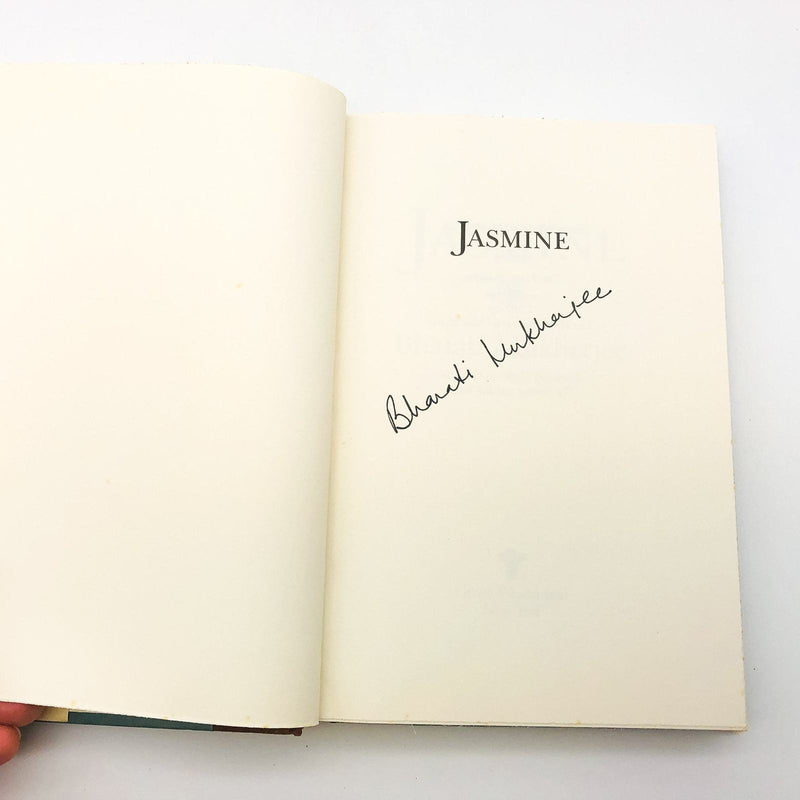 JASMINE
Bharati Mukherjee